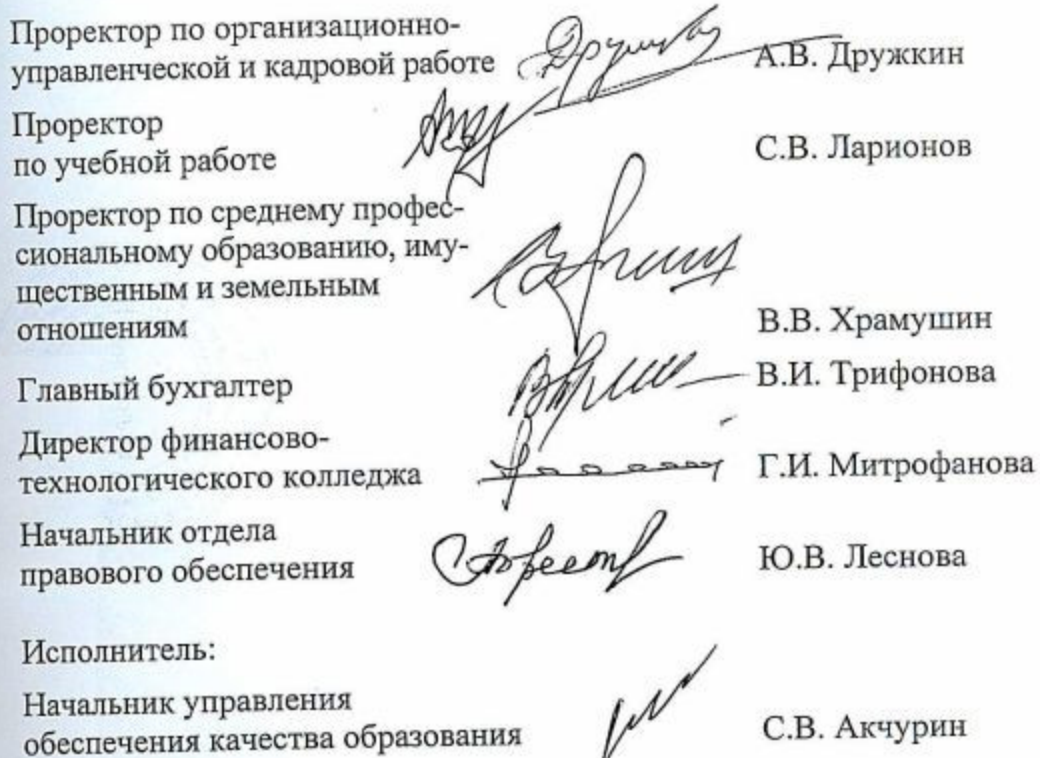 Проректор по организационно-
управленческой и кадровой работе А.В. Дружкин
Проректор
по учебной работе С.В. Ларионов
Проректор по среднему профес-
сиональному образованию, иму-
щественным и земельным
отношениям В.В. Храмушин
Главный бухгалтер В.И. Трифонова
Директор финансово-
технологического колледжа Г.И. Митрофанова
Начальник отдела
правового обеспечения Ю.В. Леснова
Исполнитель:
Начальник управления
обеспечения качества образования С.В. Акчурин